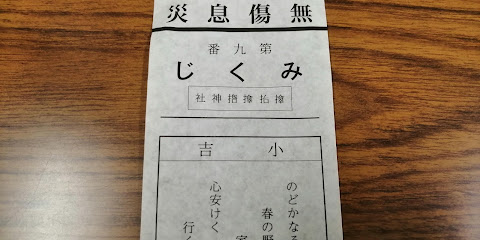 無傷息災
第九番
みくじ
𪮷抬𪮷𪮇神社
小吉
のどかなる
春の野
心安けく
行く